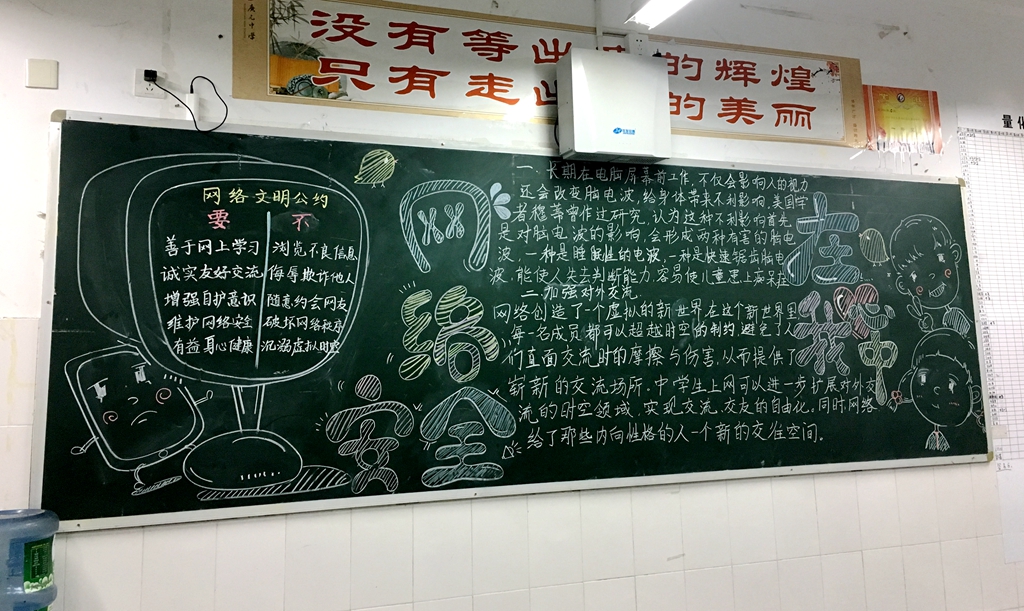 没有等出 的辉煌
只有走出 的美丽
量化
网络文明公约
要 不
善于网上学习 浏览不良信息
诚实友好交流 侮辱欺诈他人
增强自护意识 随意约会网友
维护网络安全 破坏网络秩序
有益身心健康 沉溺虚拟时空
网络安全
一、长期在电脑屏幕前工作,不仅会影响人的视力
还会改变脑电波,给身体带来不利影响,美国学
者穆蒂曾作过研究,认为这种不利影响首先
是对脑电波的影响,会形成两种有害的脑电
波,一种是睡眠性的电波,一种是快速锯齿脑电
波,能使人失去判断能力,容易使儿童患上痴呆症
二、加强对外交流
网络创造了一个虚拟的新世界在这个新世界里
每一名成员都可以超越时空的制约避免了人
们直面交流时的摩擦与伤害,从而提供了
崭新的交流场所.中学生上网可以进一步扩展对外交
流的时空领域,实现交流、交友的自由化,同时网络
给了那些内向性格的人一个新的交往空间。
在我心中